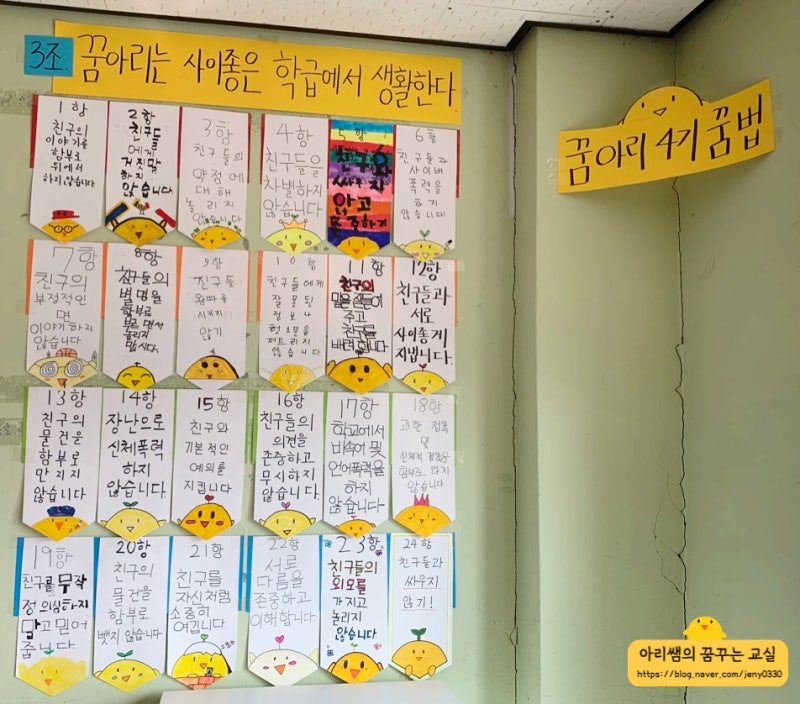 3조. 꿈아리는 사이좋은 학급에서 생활한다
꿈아리 4기 꿈법
1항
친구의
이야기를
함부로
뒤에서
하지 않습니다
2항
친구들
에게
거짓말
하지
않습니다
3항
친구들의
약점에
대해
놀리지
않습니다
4항
친구들을
차별하지
않습니다
5항
친구와
싸우지
않고
존중하기
6항
친구들과
사이버
폭력을
하지
않습니다!
7항
친구의
부정적인
면
이야기하지
않습니다.
8항
친구들의
별명을
함부로
부르면서
놀리지
맙시다.
9항
친구들
왕따를
시키지
않기
10항
친구들에게
잘못된
정보나
헛소문을
퍼트리지
않습니다
11항
친구의
말을 귀들어
주고
친구를
배려합니다
12항
친구들과
서로
사이좋게
지냅니다.
13항
친구의
물건은
함부로
만지지
않습니다
14항
장난으로
신체폭력
하지
않습니다.
15항
친구와
기본적인
예의를
지킵니다
16항
친구들의
의견을
존중하고
무시하지
않습니다.
17항
학교에서
비속어 및
언어폭력을
하지
않습니다.
18항
과한 접촉
및
신체적 접촉은
함부로 하지
않습니다
19항
친구를 무작
정 의심하지
말고 믿어
줍니다.
20항
친구의
물건을
함부로
뺏지 않습니다
21항
친구를
자신처럼
소중히
여깁니다
22항
서로
다름을
존중하고
이해합니다
23항
친구들의
외모를
가지고
놀리지
않습니다.
24항
친구들과
싸우지
않기!
아리쌤의 꿈꾸는 교실
https://blog.naver.com/jeny0330